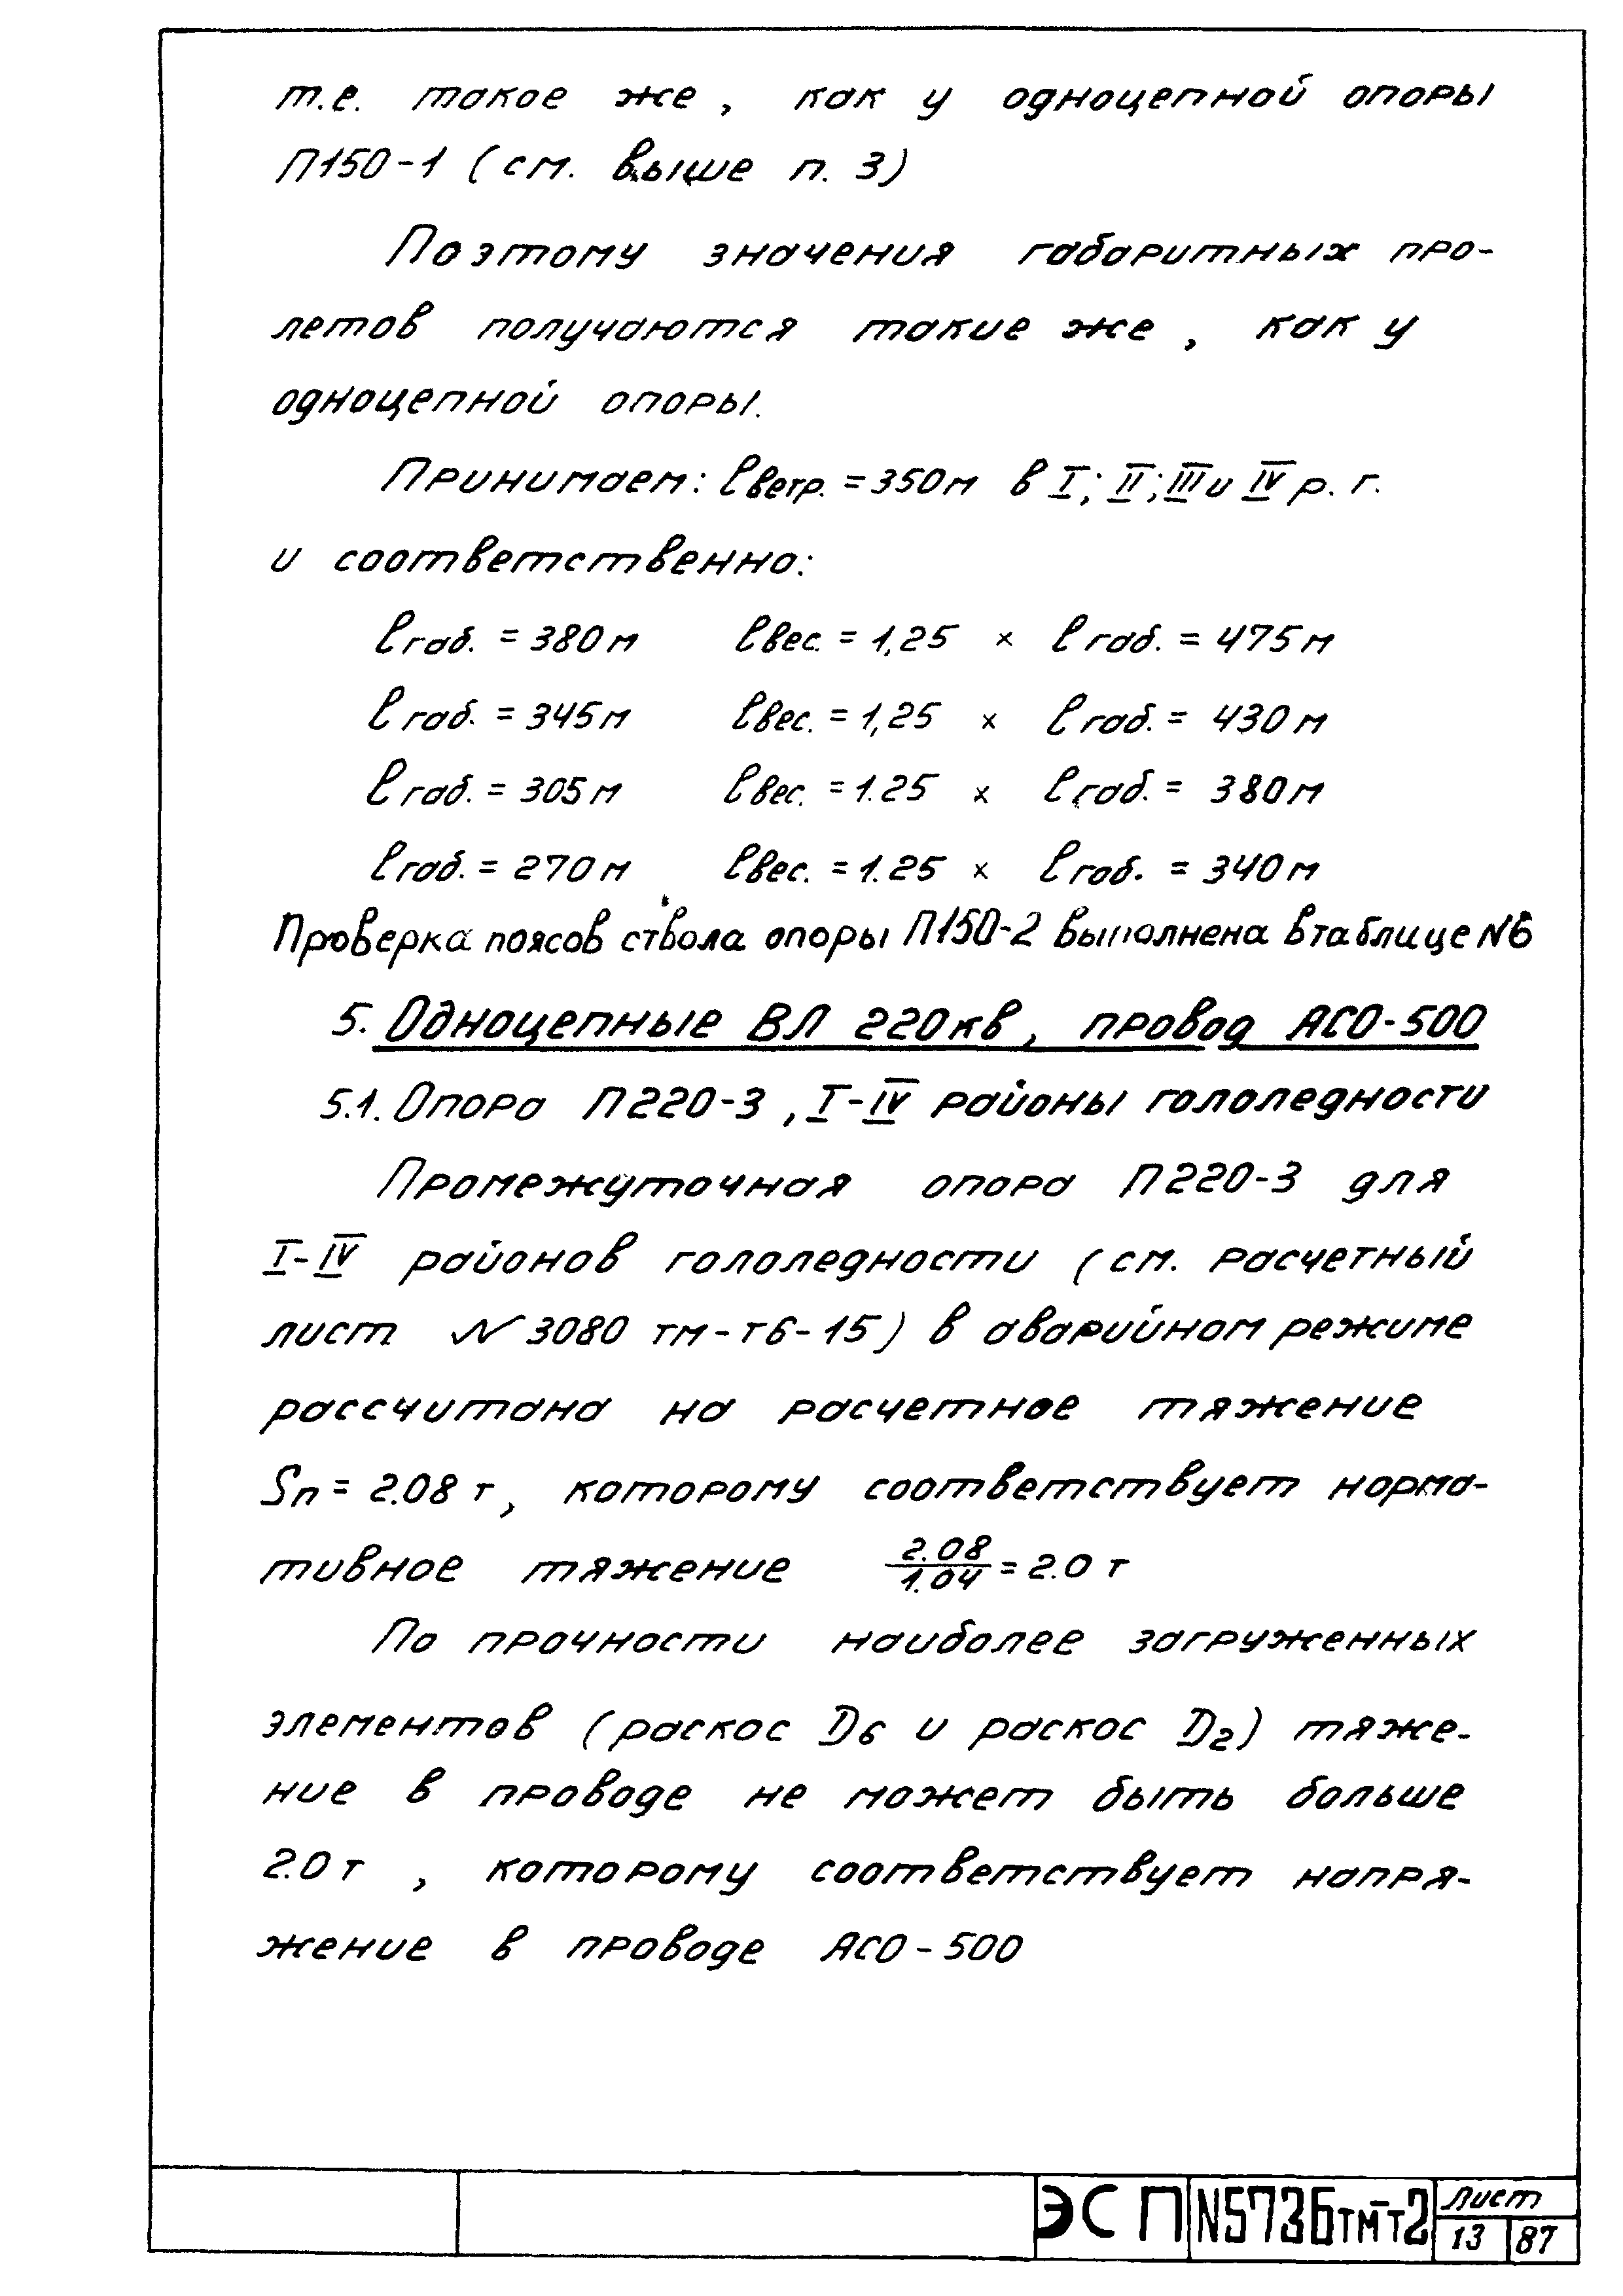 т.е. такое же, как у одноцепной опоры
П150-1 (см. выше п. 3)
Поэтому значения габаритных про-
летов получаются такие же, как у
одноцепной опоры.
Принимаем: ℓветр. = 350м в I; II; III и IV р. г.
и соответственно:
ℓгаб. = 380 м ℓвес. = 1,25 × ℓгаб. = 475 м
ℓгаб. = 345 м ℓвес. = 1,25 × ℓгаб. = 430 м
ℓгаб. = 305 м ℓвес. = 1.25 × ℓгаб. = 380 м
ℓгаб. = 270 м ℓвес. = 1.25 × ℓгаб. = 340 м
Проверка поясов ствола опоры П150-2 выполнена в таблице N6
5. Одноцепные ВЛ 220кв, провод АСО-500
5.1. Опора П220-3, I-IV районы гололедности
Промежуточная опора П220-3 для
I-IV районов гололедности (см. расчетный
лист N 3080 тм-т6-15) в аварийном режиме
рассчитана на расчетное тяжение
Sп = 2.08 т, которому соответствует норма-
тивное тяжение 2.08/1.04 = 2.0 т
По прочности наиболее загруженных
элементов (раскос D6 и раскос D2) тяже-
ние в проводе не может быть больше
2.0 т, которому соответствует напря-
жение в проводе АСО-500
ЭСП N5736тм-т2 Лист
13 87